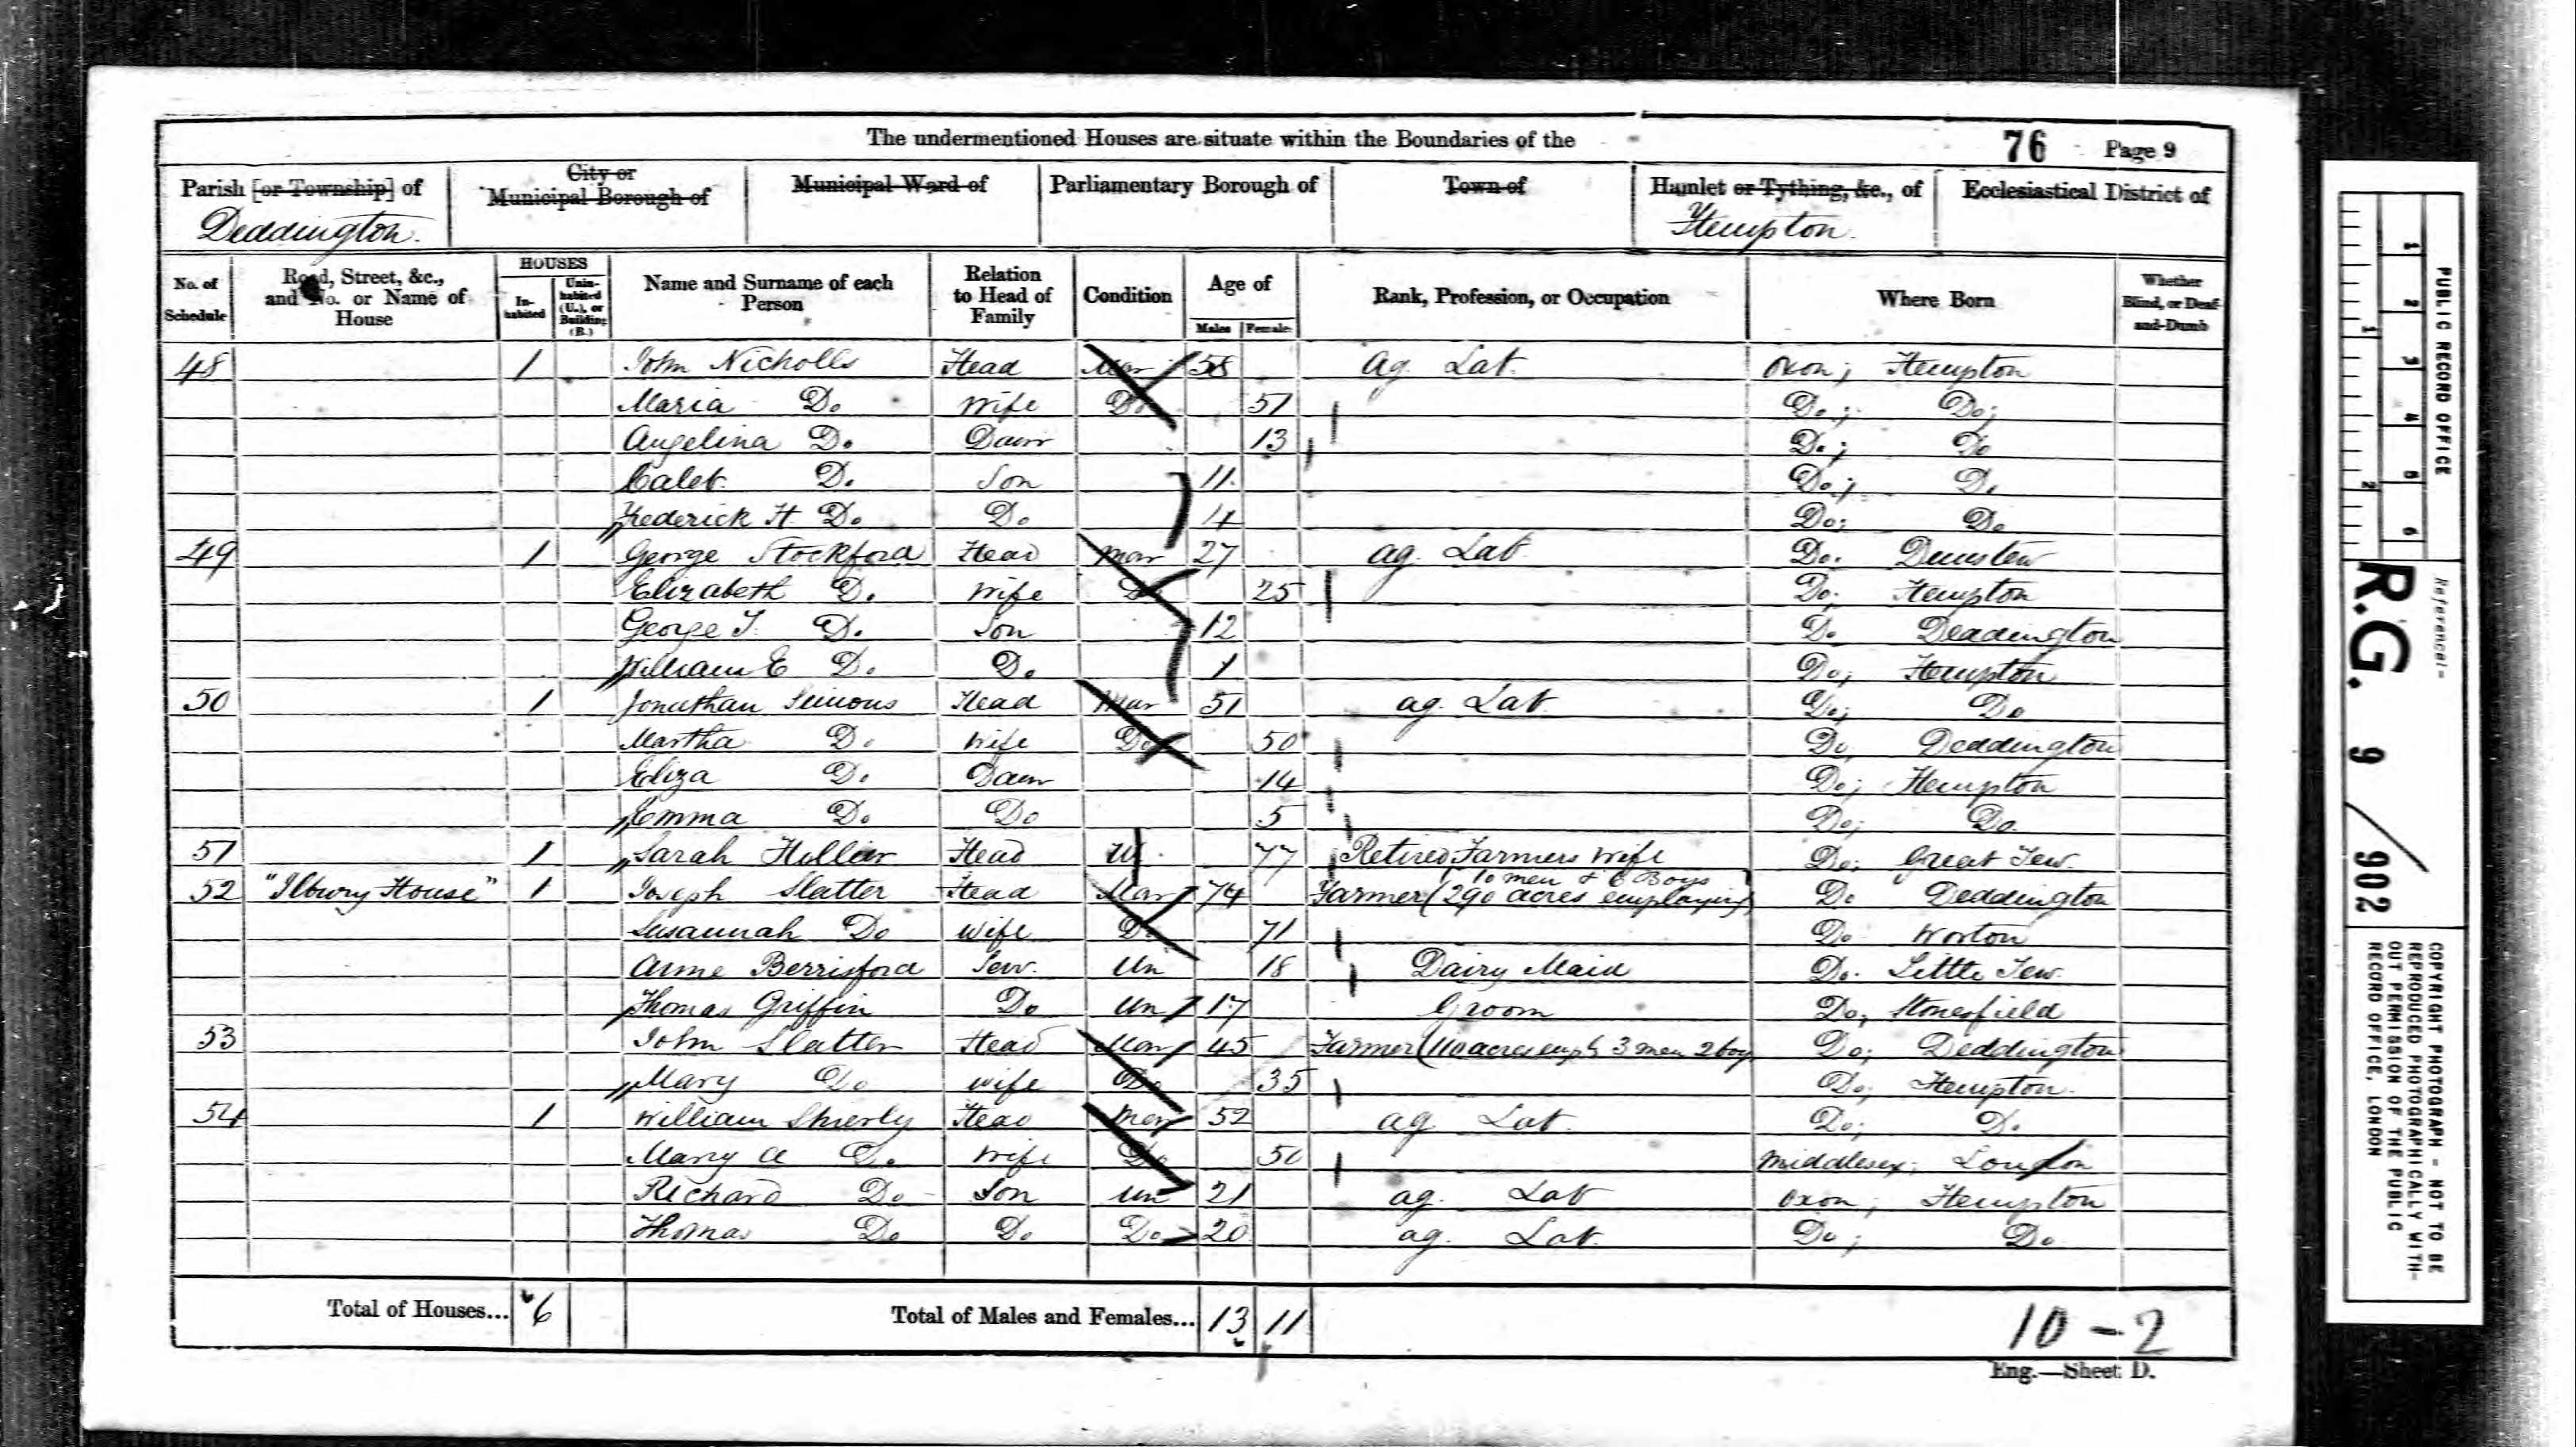 The undermentioned Houses are situate within the Boundaries of the
76 Page 9
Parish [or Township] of Deddington.
City or Municipal Borough of
Municipal Ward of
Parliamentary Borough of
Town of
Hamlet or Tything, &c., of Hempton.
Ecclesiastical District of
No. of Schedule
Road, Street, &c., and No. or Name of House
HOUSES
In-habited
Unin-habited (U.), or Building (B.)
Name and Surname of each Person
Relation to Head of Family
Condition
Age of
Males Females
Rank, Profession, or Occupation
Where Born
Whether Blind, or Deaf-and-Dumb
48 1 John Nicholls Head Mar 58 Ag. Lab. Oxon; Hempton
Maria Do Wife Do 51 Do; Do;
Angelina Do. Daur 13 Do; Do
Caleb Do. Son 11 Do; Do
Frederick H. Do. Do 4 Do; Do
49 1 George Stockford Head Mar 27 ag. Lab. Do. Dunstew
Elizabeth Do. Wife Do 25 Do. Hempton
George T. Do. Son 12 Do Deddington
William E Do. Do. 1 Do; Hempton
50 1 Jonathan Simons Head Mar 51 ag. Lab. Do; Do
Martha Do. Wife Do 50 Do Deddington
Eliza Do. Daur 14 Do; Hempton
Emma Do. Do 5 Do; Do.
51 1 Sarah Hollier Head W. 77 Retired Farmers Wife Do; Great Tew.
52 "Ilbury House" 1 Joseph Slatter Head Mar 74 Farmer (290 acres employing 10 men & 6 Boys) Do Deddington
Susannah Do Wife Do 71 Do Worton
Anne Berrisford Serv. Un 18 Dairy Maid Do. Little Tew.
Thomas Griffin Do Un 17 Groom Do, Stonesfield
53 John Slatter Head Mar 45 Farmer (110 acres empg 3 men 2 boys Do; Deddington
Mary Do Wife Do 35 Do; Hempton.
54 1 William Shierly Head Mar 52 ag Lab. Do; Do.
Mary A Do. Wife Do 50 Middlesex; London
Richard Do Son Un 21 ag. Lab Oxon; Hempton
Thomas Do Do Do 20 ag. Lab. Do; Do
Total of Houses... 6
Total of Males and Females... 13 11
10 - 2
Eng.—Sheet D.
PUBLIC RECORD OFFICE
1 2 3 4 5 6
1 2
Reference:-
R.G. 9 / 902
COPYRIGHT PHOTOGRAPH - NOT TO BE
REPRODUCED PHOTOGRAPHICALLY WITH-
OUT PERMISSION OF THE PUBLIC
RECORD OFFICE, LONDON